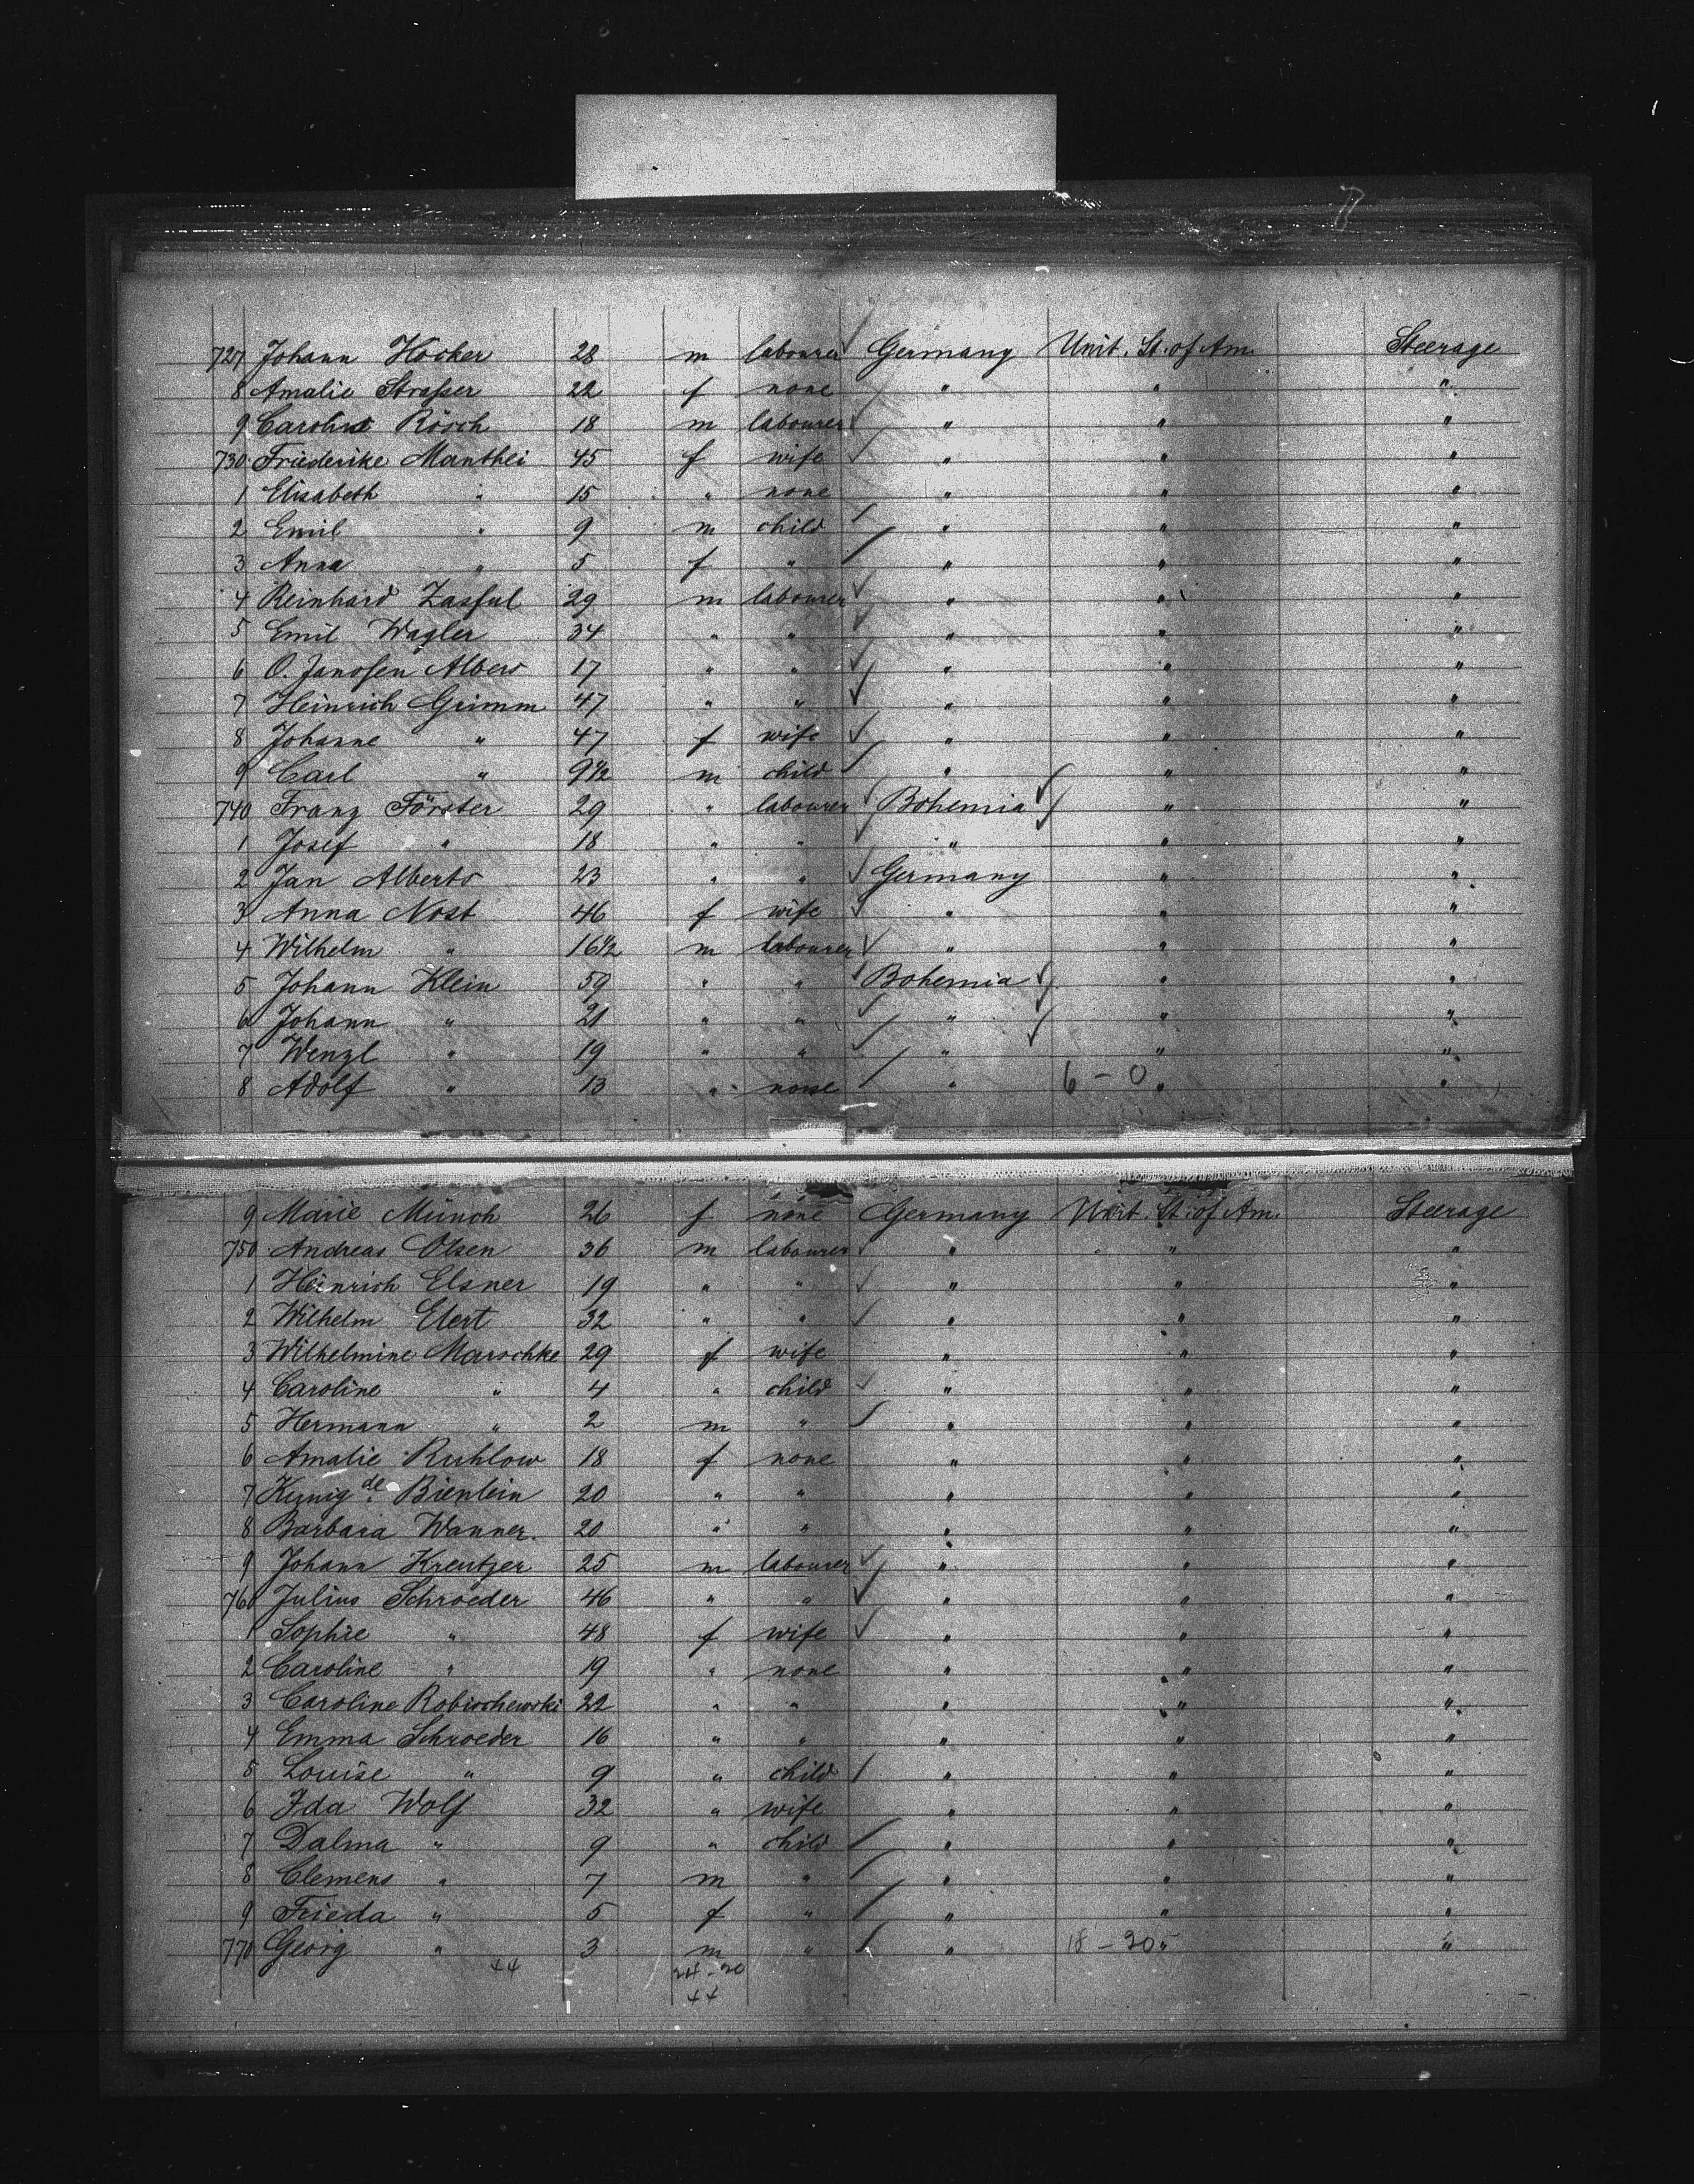 727 Johann Hocker 28 m labourer Germany Unit. St. of Am. Steerage
8 Amalie Straßer 22 f none " " "
9 Caroline Rösch 18 m labourer " " "
730 Friederike Manthei 45 f wife " " "
1 Elisabeth " 15 " none " " "
2 Emil " 9 m child " " "
3 Anna " 5 f " " " "
4 Reinhard Zasful 29 m labourer " " "
5 Emil Wagler 34 " " " " "
6 O. Janoſen Albers 17 " " " " "
7 Heinrich Grimm 47 " " " " "
8 Johanne " 47 f wife " " "
9 Carl " 9 1/2 m child " " "
740 Franz Förster 29 " labourer Bohemia " "
1 Josef " 18 " " " " "
2 Jan Alberts 23 " " Germany " "
3 Anna Nost 46 f wife " " "
4 Wilhelm " 16 1/2 m labourer " " "
5 Johann Klein 59 " " Bohemia " "
6 Johann " 21 " " " " "
7 Wenzl " 19 " " " " "
8 Adolf " 13 " none " 6 - 0 " "
9 Marie Münch 26 f none Germany Unit. St. of Am. Steerage
750 Andreas Olsen 36 m labourer " " "
1 Heinrich Elsner 19 " " " " "
2 Wilhelm Elert 32 " " " " "
3 Wilhelmine Marschke 29 f wife " " "
4 Caroline " 4 " child " " "
5 Hermann " 2 m " " " "
6 Amalie Ruhlow 18 f none " " "
7 Kunigde. Bienlein 20 " " " " "
8 Barbara Wanner. 20 " " " " "
9 Johann Kreutzer 25 m labourer " " "
760 Julius Schroeder 46 " " " " "
1 Sophie " 48 f wife " " "
2 Caroline " 19 " none " " "
3 Caroline Robischewski 22 " " " " "
4 Emma Schroeder 16 " " " " "
5 Louise " 9 " child " " "
6 Ida Wolf 32 " wife " " "
7 Dalma " 9 " child " " "
8 Clemens " 7 m " " " "
9 Frieda " 5 f " " " "
770 Georg " 3 m " " 18 - 20 " "
44 24 - 20
44